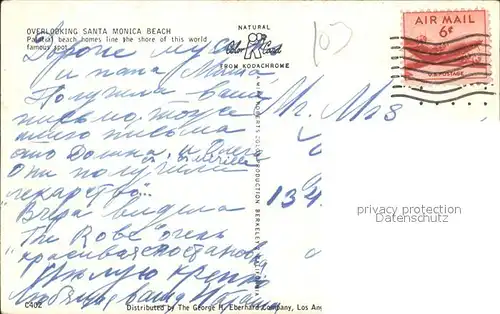 OVERLOOKING SANTA MONICA BEACH
Palatial beach homes line the shore of this world
famous spot.
NATURAL
Color Card
FROM KODACHROME
AIR MAIL
6¢
U.S. POSTAGE
103
Дорогие
и папа Миша
Получила ваше
письмо, тоже
много письма
от и Олега
Они получили
лекарство"..
Вчера видела
"The Robe" очень
красивая постановка
Целую крепко
любящая ваша Наташа
Mr. Mrs
134
MIKE ROBERTS COLOR PRODUCTION BERKELEY 2, CALIFORNIA
privacy protection
Datenschutz
C402
Distributed by The George H. Eberhard Company, Los Ang